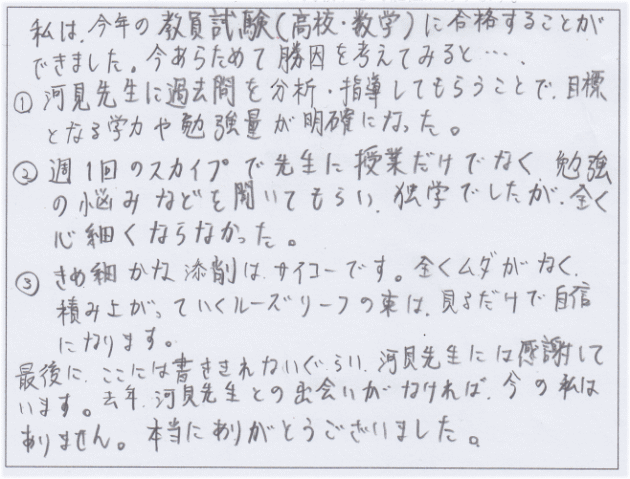 私は、今年の教員試験(高校・数学)に合格することが
できました。今あらためて勝因を考えてみると…、
① 河見先生に過去問を分析・指導してもらうことで、目標
となる学力や勉強量が明確になった。
② 週1回のスカイプで先生に授業だけでなく、勉強
の悩みなどを聞いてもらい、独学でしたが、全く
心細くならなかった。
③ きめ細かな添削は、サイコーです。全くムダがなく、
積み上がっていくルーズリーフの束は、見るだけで自信
になります。
最後に、ここには書ききれないぐらい、河見先生には感謝して
います。去年、河見先生との出会いがなければ、今の私は
ありません。本当にありがとうございました。